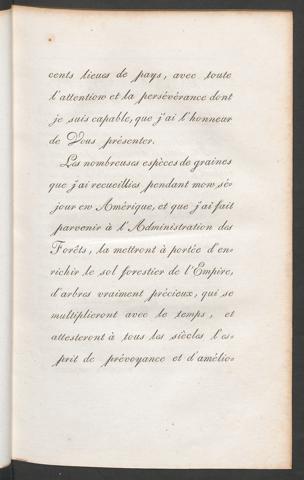 cents lieues de pays, avec toute
l'attention et la persévérance dont
je suis capable, que j'ai l'honneur
de Vous présenter.
Les nombreuses espèces de graines
que j'ai recueillies pendant mon sé-
jour en Amérique, et que j'ai fait
parvenir à l'Administration des
Forêts, la mettront à portée d'en-
richir le sol forestier de l'Empire,
d'arbres vraiment précieux, qui se
multiplieront avec le temps, et
attesteront à tous les siècles l'es-
prit de prévoyance et d'amélio-